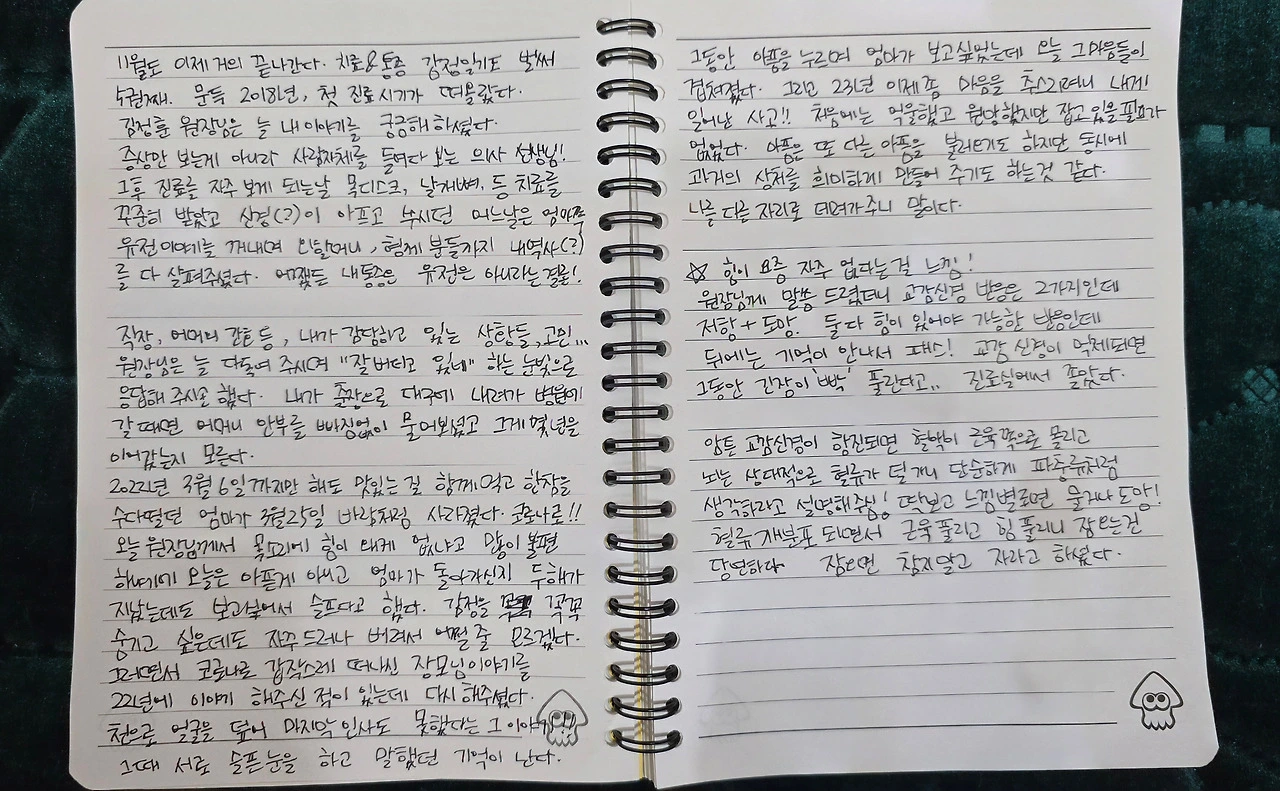 11월도 이제 거의 끝나간다. 치료&통증 감정일기도 벌써
5권째. 문득 2018년, 첫 진료시기가 떠올랐다.
김정훈 원장님은 늘 내 이야기를 궁금해 하셨다.
증상만 보는게 아니라 사람자체를 들여다 보는 의사 선생님!
그후 진료를 자주 보게 되는날 목디스크, 날개뼈, 등 치료를
꾸준히 받았고 신경(?)이 아프고 쑤시던 어느날은 엄마쪽
유전이야기를 꺼내며 외할머니, 형제 분들까지 내역사(?)
를 다 살펴주셨다. 어쨌든 내통증은 유전은 아니라는결론!
직장, 어머의 간호 등, 내가 감당하고 있는 상황들, 고민...
원장님은 늘 다독여 주시며 "잘버티고 있네" 하는 눈빛으로
응답해 주시곤 했다. 내가 출장으로 대구에 내려가 병원에
갈때면 어머니 안부를 빠짐없이 물어보셨고 그게 몇년을
이어갔는지 모른다.
2022년 3월 6일까지만 해도 맛있는 걸 함께먹고 한참을
수다떨던 엄마가 3월25일 바람처럼 사라졌다. 코로나로!!
오늘 원장님께서 목소리에 힘이 왜케 없냐고 많이 불편
하녜기에 오늘은 아픈게 아니고 엄마가 돌아가신지 두해가
지났는데도 보고싶어서 슬프다고 했다. 감정을 꼭꼭
숨기고 싶은데도 자주 드러나 버려서 어쩔 줄 모르겠다.
그러면서 코로나로 갑작스레 떠나신 장모님이야기를
22년에 이야기 해주신 적이 있는데 다시 해주셨다.
천으로 얼굴을 덮어 마지막 인사도 못했다는 그 이야기
그때 서로 슬픈눈을 하고 말했던 기억이 난다.
그동안 아픔을 누르며 엄마가 보고싶었는데 오늘 그마음들이
겹쳐졌다. 그리고 23년 이제 좀 마음을 추스리려니 내게
일어난 사고!! 처음에는 억울했고 원망했지만 잡고 있을필요가
없었다. 아픔은 또 다른 아픔을 불러오기도 하지만 동시에
과거의 상처를 희미하게 만들어 주기도 하는것 같다.
나를 다른 자리로 데려가주니 말이다.
☆ 힘이 요즘 자주 없다는걸 느낌!
원장님께 말씀 드렸더니 교감신경 반응은 2가지인데
저항 + 도망. 둘다 힘이 있어야 가능한 반응인데
뒤에는 기억이 안나서 패스! 교감 신경이 억제되면
그동안 긴장이 '빡' 풀린다고.. 진료실에서 졸았다.
암튼 교감신경이 항진되면 혈액이 근육쪽으로 몰리고
뇌는 상대적으로 혈류가 덜 가니 단순하게 파충류처럼
생각하라고 설명해주심! 딱보고 느낌별로면 물거나 도망!
혈류 재분포 되면서 근육풀리고 힘풀리니 잠오는건
당연하다 잠오면 참지말고 자라고 하셨다.